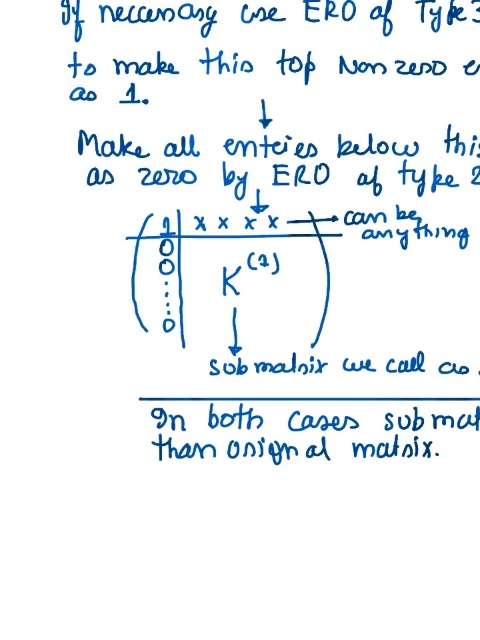 If neccesary use ERO of Type 3
to make this top Non zero e
as 1.
Make all enteies below this
as zero by ERO of type 2
1 x x x x can be
anything
0
0
0
K(1)
submatrix we call as
In both cases submat
than original matrix.